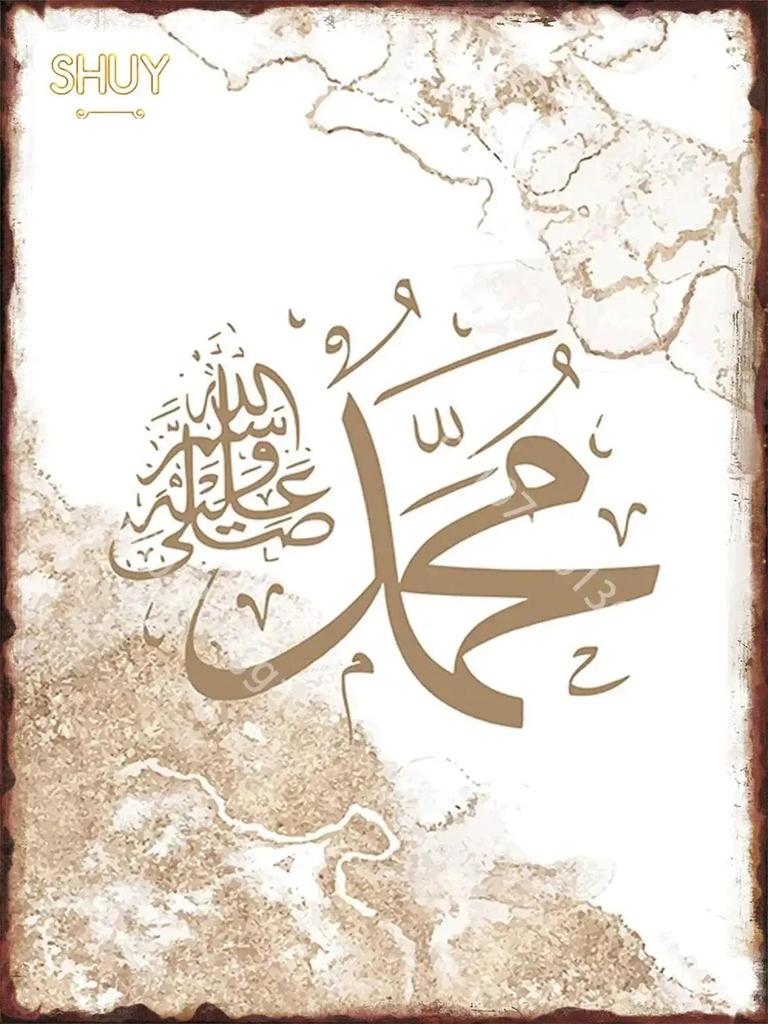 SHUY
محمد
صلى الله عليه وسلم